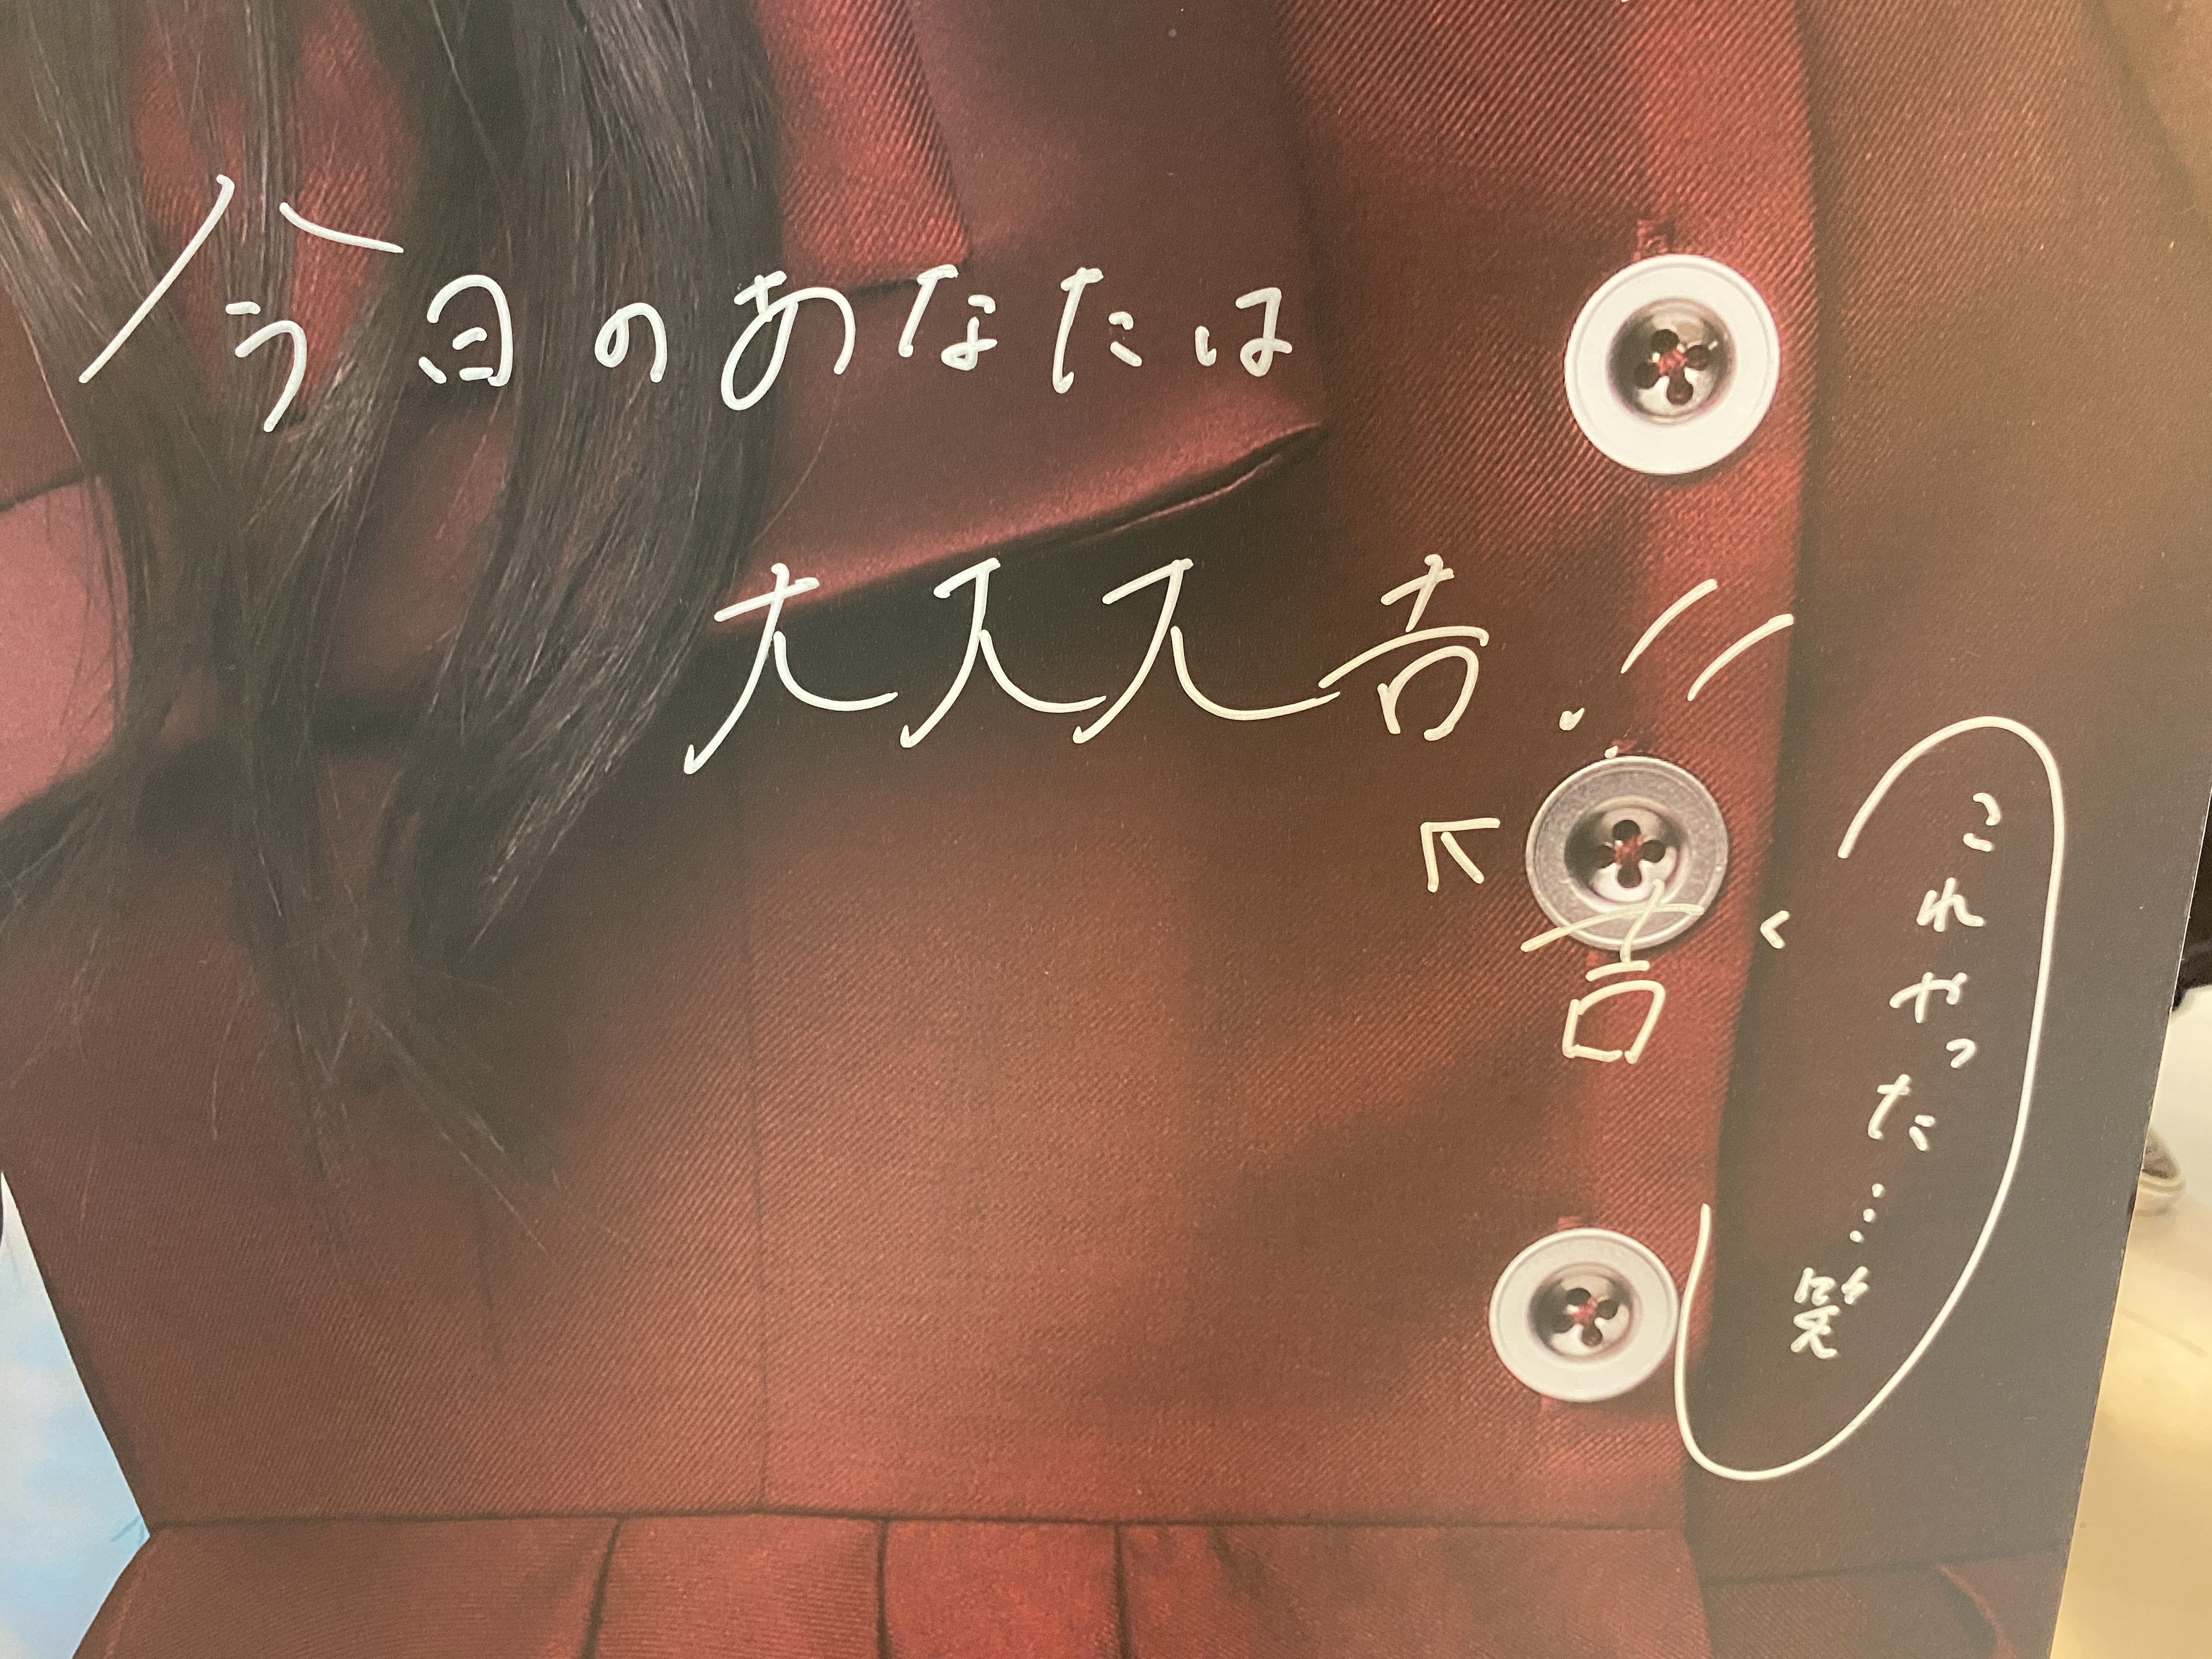 今日のあなたは
大大大吉!!
↖
吉
<
これやった…笑